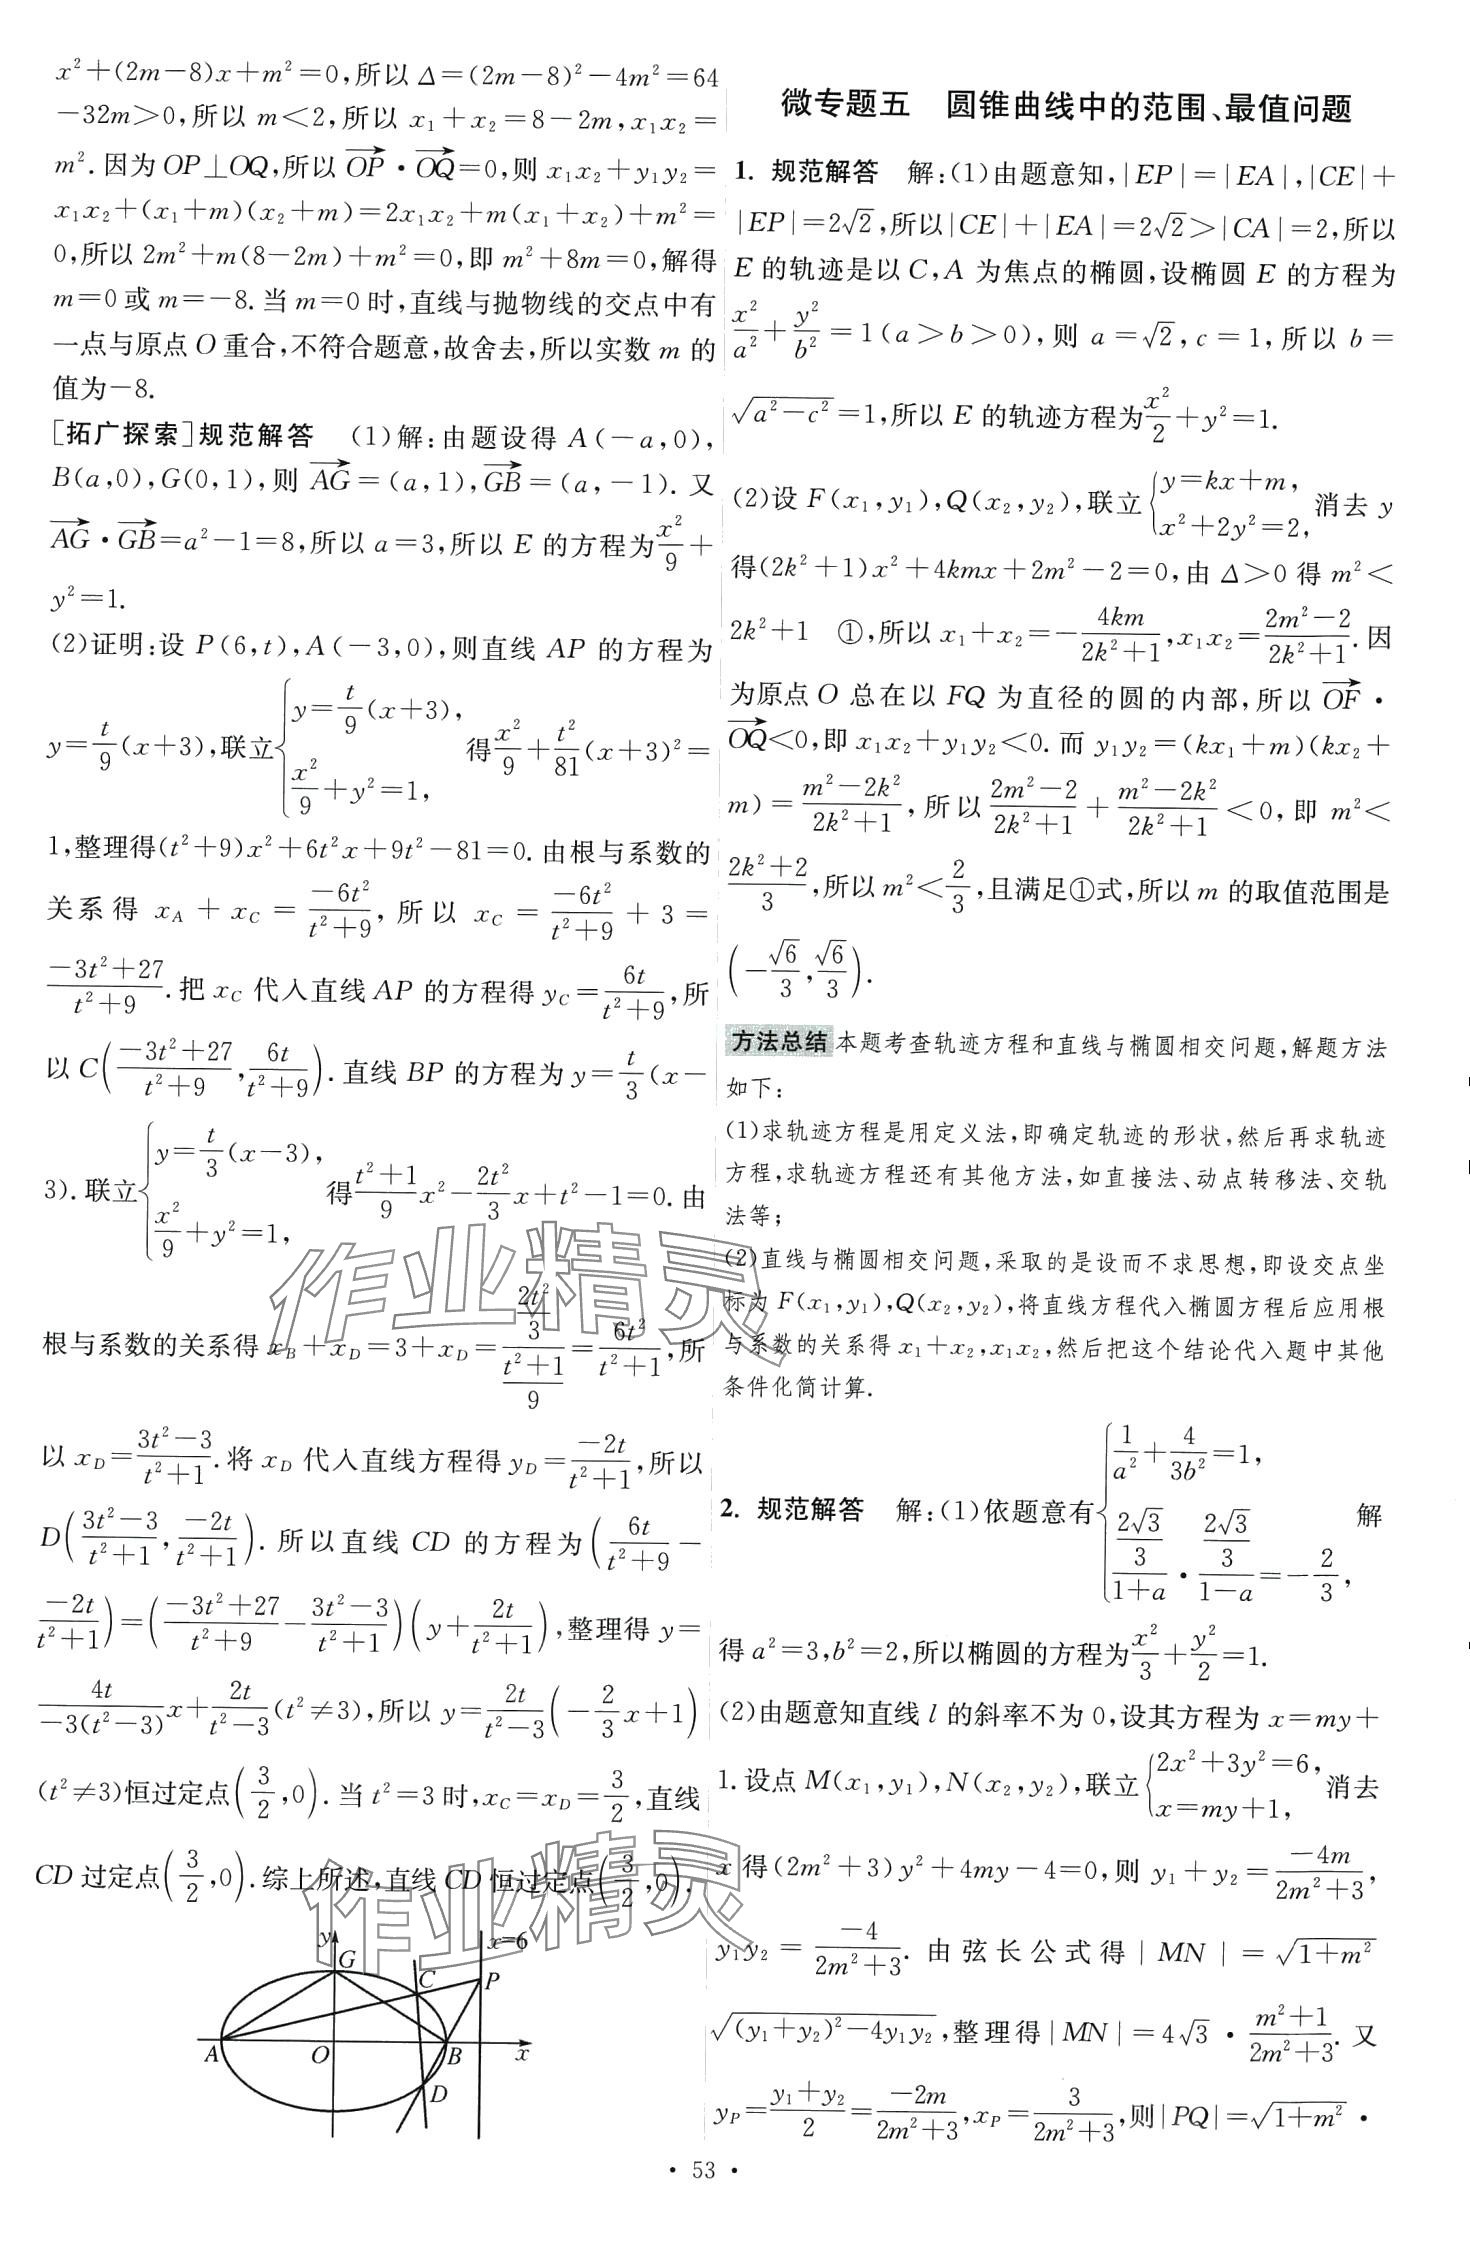 x²+(2m−8)x+m²=0,所以 Δ=(2m−8)²−4m²=64
−32m>0,所以 m<2,所以 x₁+x₂=8−2m,x₁x₂=
m².因为OP⊥OQ,所以 \overrightarrow{OP}·\overrightarrow{OQ}=0,则 x₁x₂+y₁y₂=
x₁x₂+(x₁+m)(x₂+m)=2x₁x₂+m(x₁+x₂)+m²=
0,所以 2m²+m(8−2m)+m²=0,即 m²+8m=0,解得
m=0 或 m=−8.当 m=0 时,直线与抛物线的交点中有
一点与原点 O 重合,不符合题意,故舍去,所以实数 m 的
值为−8.
[拓广探索]规范解答 (1)解:由题设得 A(−a,0),
B(a,0),G(0,1),则 \overrightarrow{AG}=(a,1),\overrightarrow{GB}=(a,−1).又
\overrightarrow{AG}·\overrightarrow{GB}=a²−1=8,所以 a=3,所以 E 的方程为\frac{x²}{9}+
y²=1.
(2)证明:设 P(6,t),A(−3,0),则直线 AP 的方程为
y=\frac{t}{9}(x+3),联立\begin{cases}y=\frac{t}{9}(x+3),\\\frac{x²}{9}+y²=1,\end{cases}得\frac{x²}{9}+\frac{t²}{81}(x+3)²=
1,整理得(t²+9)x²+6t²x+9t²−81=0.由根与系数的
关系得 x_A+x_C=\frac{−6t²}{t²+9},所以 x_C=\frac{−6t²}{t²+9}+3=
\frac{−3t²+27}{t²+9}.把 x_C 代入直线 AP 的方程得 y_C=\frac{6t}{t²+9},所
以 C(\frac{−3t²+27}{t²+9},\frac{6t}{t²+9}).直线 BP 的方程为 y=\frac{t}{3}(x−
3).联立\begin{cases}y=\frac{t}{3}(x−3),\\\frac{x²}{9}+y²=1,\end{cases}得\frac{t²+1}{9}x²−\frac{2t²}{3}x+t²−1=0.由
根与系数的关系得 x_B+x_D=3+x_D=\frac{\frac{2t²}{3}}{\frac{t²+1}{9}}=\frac{6t²}{t²+1},所
以 x_D=\frac{3t²−3}{t²+1}.将 x_D 代入直线方程得 y_D=\frac{−2t}{t²+1},所以
D(\frac{3t²−3}{t²+1},\frac{−2t}{t²+1}).所以直线 CD 的方程为(\frac{6t}{t²+9}−
\frac{−2t}{t²+1})=(\frac{−3t²+27}{t²+9}−\frac{3t²−3}{t²+1})(y+\frac{2t}{t²+1}),整理得 y=
\frac{4t}{−3(t²−3)}x+\frac{2t}{t²−3}(t²≠3),所以 y=\frac{2t}{t²−3}(−\frac{2}{3}x+1)
(t²≠3)恒过定点(\frac{3}{2},0).当 t²=3 时,x_C=x_D=\frac{3}{2},直线
CD 过定点(\frac{3}{2},0).综上所述,直线 CD 恒过定点(\frac{3}{2},0).
y
x=6
G
C
P
A
O
B
x
D
微专题五 圆锥曲线中的范围、最值问题
1. 规范解答 解:(1)由题意知,|EP|=|EA|,|CE|+
|EP|=2√2,所以|CE|+|EA|=2√2>|CA|=2,所以
E 的轨迹是以 C,A 为焦点的椭圆,设椭圆 E 的方程为
\frac{x²}{a²}+\frac{y²}{b²}=1(a>b>0),则 a=√2,c=1,所以 b=
\sqrt{a²−c²}=1,所以 E 的轨迹方程为\frac{x²}{2}+y²=1.
(2)设 F(x₁,y₁),Q(x₂,y₂),联立\begin{cases}y=kx+m,\\x²+2y²=2,\end{cases}消去 y
得(2k²+1)x²+4kmx+2m²−2=0,由 Δ>0 得 m²<
2k²+1 ①,所以 x₁+x₂=−\frac{4km}{2k²+1},x₁x₂=\frac{2m²−2}{2k²+1}.因
为原点 O 总在以 FQ 为直径的圆的内部,所以 \overrightarrow{OF}·
\overrightarrow{OQ}<0,即 x₁x₂+y₁y₂<0.而 y₁y₂=(kx₁+m)(kx₂+
m)=\frac{m²−2k²}{2k²+1},所以\frac{2m²−2}{2k²+1}+\frac{m²−2k²}{2k²+1}<0,即 m²<
\frac{2k²+2}{3},所以 m²<\frac{2}{3},且满足①式,所以 m 的取值范围是
(−\frac{√6}{3},\frac{√6}{3}).
方法总结 本题考查轨迹方程和直线与椭圆相交问题,解题方法
如下:
(1)求轨迹方程是用定义法,即确定轨迹的形状,然后再求轨迹
方程,求轨迹方程还有其他方法,如直接法、动点转移法、交轨
法等;
(2)直线与椭圆相交问题,采取的是设而不求思想,即设交点坐
标为 F(x₁,y₁),Q(x₂,y₂),将直线方程代入椭圆方程后应用根
与系数的关系得 x₁+x₂,x₁x₂,然后把这个结论代入题中其他
条件化简计算.
2. 规范解答 解:(1)依题意有\begin{cases}\frac{1}{a²}+\frac{4}{3b²}=1,\\\frac{\frac{2√3}{3}}{1+a}·\frac{\frac{2√3}{3}}{1−a}=−\frac{2}{3},\end{cases}解
得 a²=3,b²=2,所以椭圆的方程为\frac{x²}{3}+\frac{y²}{2}=1.
(2)由题意知直线 l 的斜率不为 0,设其方程为 x=my+
1.设点 M(x₁,y₁),N(x₂,y₂),联立\begin{cases}2x²+3y²=6,\\x=my+1,\end{cases}消去
x 得(2m²+3)y²+4my−4=0,则 y₁+y₂=\frac{−4m}{2m²+3},
y₁y₂=\frac{−4}{2m²+3}.由弦长公式得|MN|=\sqrt{1+m²}
\sqrt{(y₁+y₂)²−4y₁y₂},整理得|MN|=4√3·\frac{m²+1}{2m²+3}.又
y_P=\frac{y₁+y₂}{2}=\frac{−2m}{2m²+3},x_P=\frac{3}{2m²+3},则|PQ|=\sqrt{1+m²}·
· 53 ·
作业精灵
作业精灵